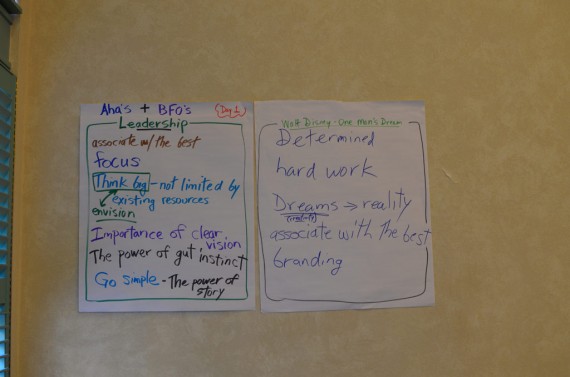 Aha's + BFO's
Day 1
Leadership
associate w/ the best
focus
Think big - not limited by
existing resources
envision
Importance of clear
vision
The power of gut instinct
Go simple - The power of
story
Walt Disney - One Man's Dream
Determined
hard work
Dreams → reality
associate with the best
branding